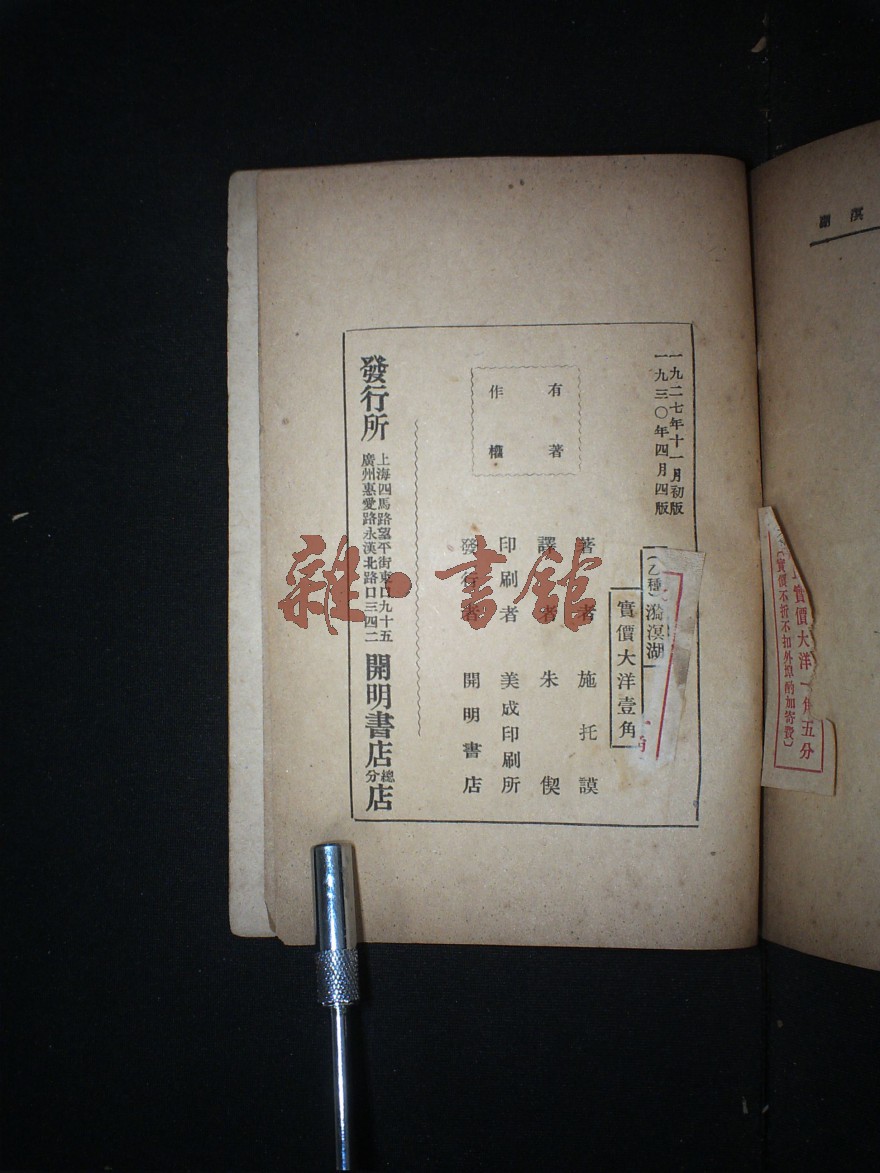 溟湖
一九二七年十一月初版
一九三〇年四月四版
(乙種)漪溟湖
實價大洋壹角
有著
作權
著者 施托謨
譯者 朱偰
印刷者 美成印刷所
發行者 開明書店
發行所
上海四馬路望平街東口九十五
廣州惠愛路永漢北路口三四二
開明書店總分店
實價大洋一角五分
(實價不折不扣外埠酌加寄費)
雜·書館